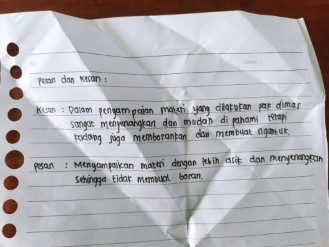 Pesan dan kesan :
Kesan : Dalam pengampaian materi yang dilakukan pak dimas
sangat menyenangkan dan mudah di pahami tetapi
kadang juga membosankan dan membuat ngantuk.
pesan : Menyampaikan materi dengan lebih asik dan menyenangkan
sehingga tidak membuat bosan.